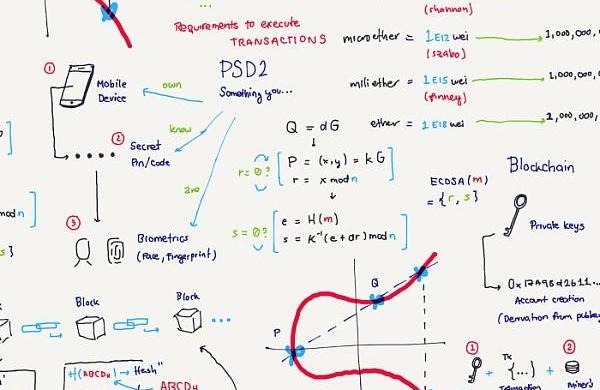 (shannon)
Requirements to execute
TRANSACTIONS
microether = 1E12 wei
1,000,000,
(szabo)
PSD2
Something you...
milliether = 1E15 wei
1,000,000,
(finney)
ether = 1E18 wei
1,000,000,
1
Mobile
Device
own
2
Secret
Pin/code
know
are
3
Biometrics
(Face, Fingerprint)
Q = dG
r=0?
P = (x,y) = kG
r = x mod n
s=0?
e = H(m)
s = K⁻¹(e + dr) mod n
ECDSA(m)
= {r, s}
Blockchain
Private keys
Account creation
mod n
s}
Block
Block
...
H(ABCDH) → Hesh"
ABCDH
P
Q
1
Tx
{...}
2
+
+
Transaction
miners